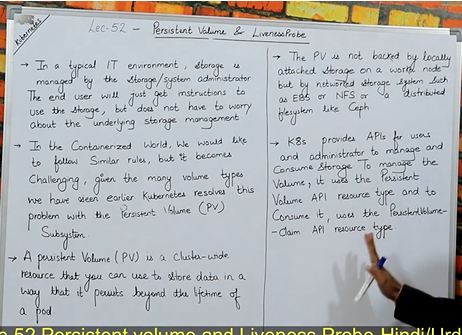 Kubernetes
Lec-52 - Persistent Volume & LivenessProbe
→ In a typical IT environment, storage is
managed by the storage/system administrator
The end user will just get instructions to
use the storage, but does not have to worry
about the underlying storage management
→ In the Containerized World, We would like
to follow Similar rules, but it becomes
Challenging, given the many volume types
we have seen earlier Kubernetes resolves this
problem with the Persistent Volume (PV)
Subsystem
→ A persistent Volume (PV) is a Cluster-wide
resource that you can use to store data in a
way that it persists beyond the lifetime of
a pod
→ The PV is not backed by locally
attached storage on a worker node
but by networked storage system such
as EBS or NFS or a distributed
filesystem like Ceph
→ K8s provides APIs for users
and administrator to manage and
Consume Storage To manage the
Volume, it uses the Persistent
Volume API resource type and to
Consume it, uses the PersistentVolume-
-claim API resource type
52 Persistent volume and Liveness Probe Hindi/Urd